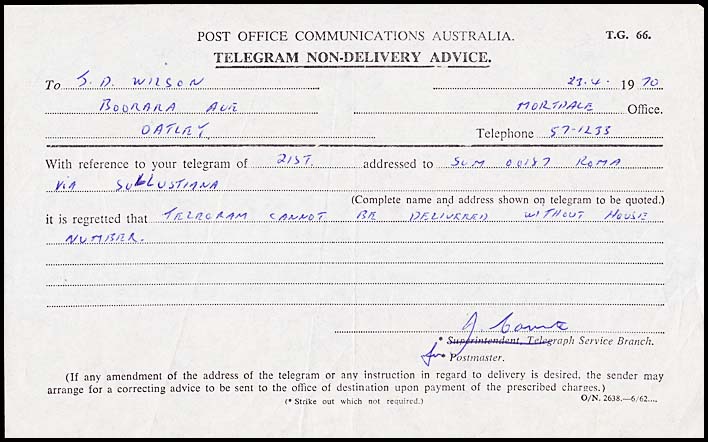 POST OFFICE COMMUNICATIONS AUSTRALIA. T.G. 66.
TELEGRAM NON-DELIVERY ADVICE.
To S. D. WILSON 23.4. 1970
BOORARA AVE MORTDALE Office.
OATLEY Telephone 57-1233
With reference to your telegram of 21ST. addressed to SUM 00187 ROMA
VIA SULLUSTIANA
(Complete name and address shown on telegram to be quoted.)
it is regretted that TELEGRAM CANNOT BE DELIVERED WITHOUT HOUSE
NUMBER.
* Superintendent, Telegraph Service Branch.
for * Postmaster.
(If any amendment of the address of the telegram or any instruction in regard to delivery is desired, the sender may
arrange for a correcting advice to be sent to the office of destination upon payment of the prescribed charges.)
(* Strike out which not required.) O/N. 2638.—6/62....